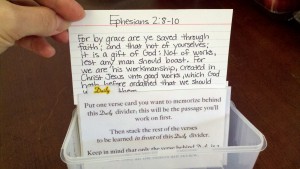 Ephesians 2:8-10
For by grace are ye saved through
faith; and that not of yourselves;
it is a gift of God: Not of works,
lest any man should boast. For
we are his workmanship, created in
Christ Jesus unto good works, which God
hath before ordained that we should
Daily
Put one verse card you want to memorize behind
this Daily divider; this will be the passage you'll
work on first.
Then stack the rest of the verses
to be learned in front of this Daily divider.
Keep in mind that only the verse behind